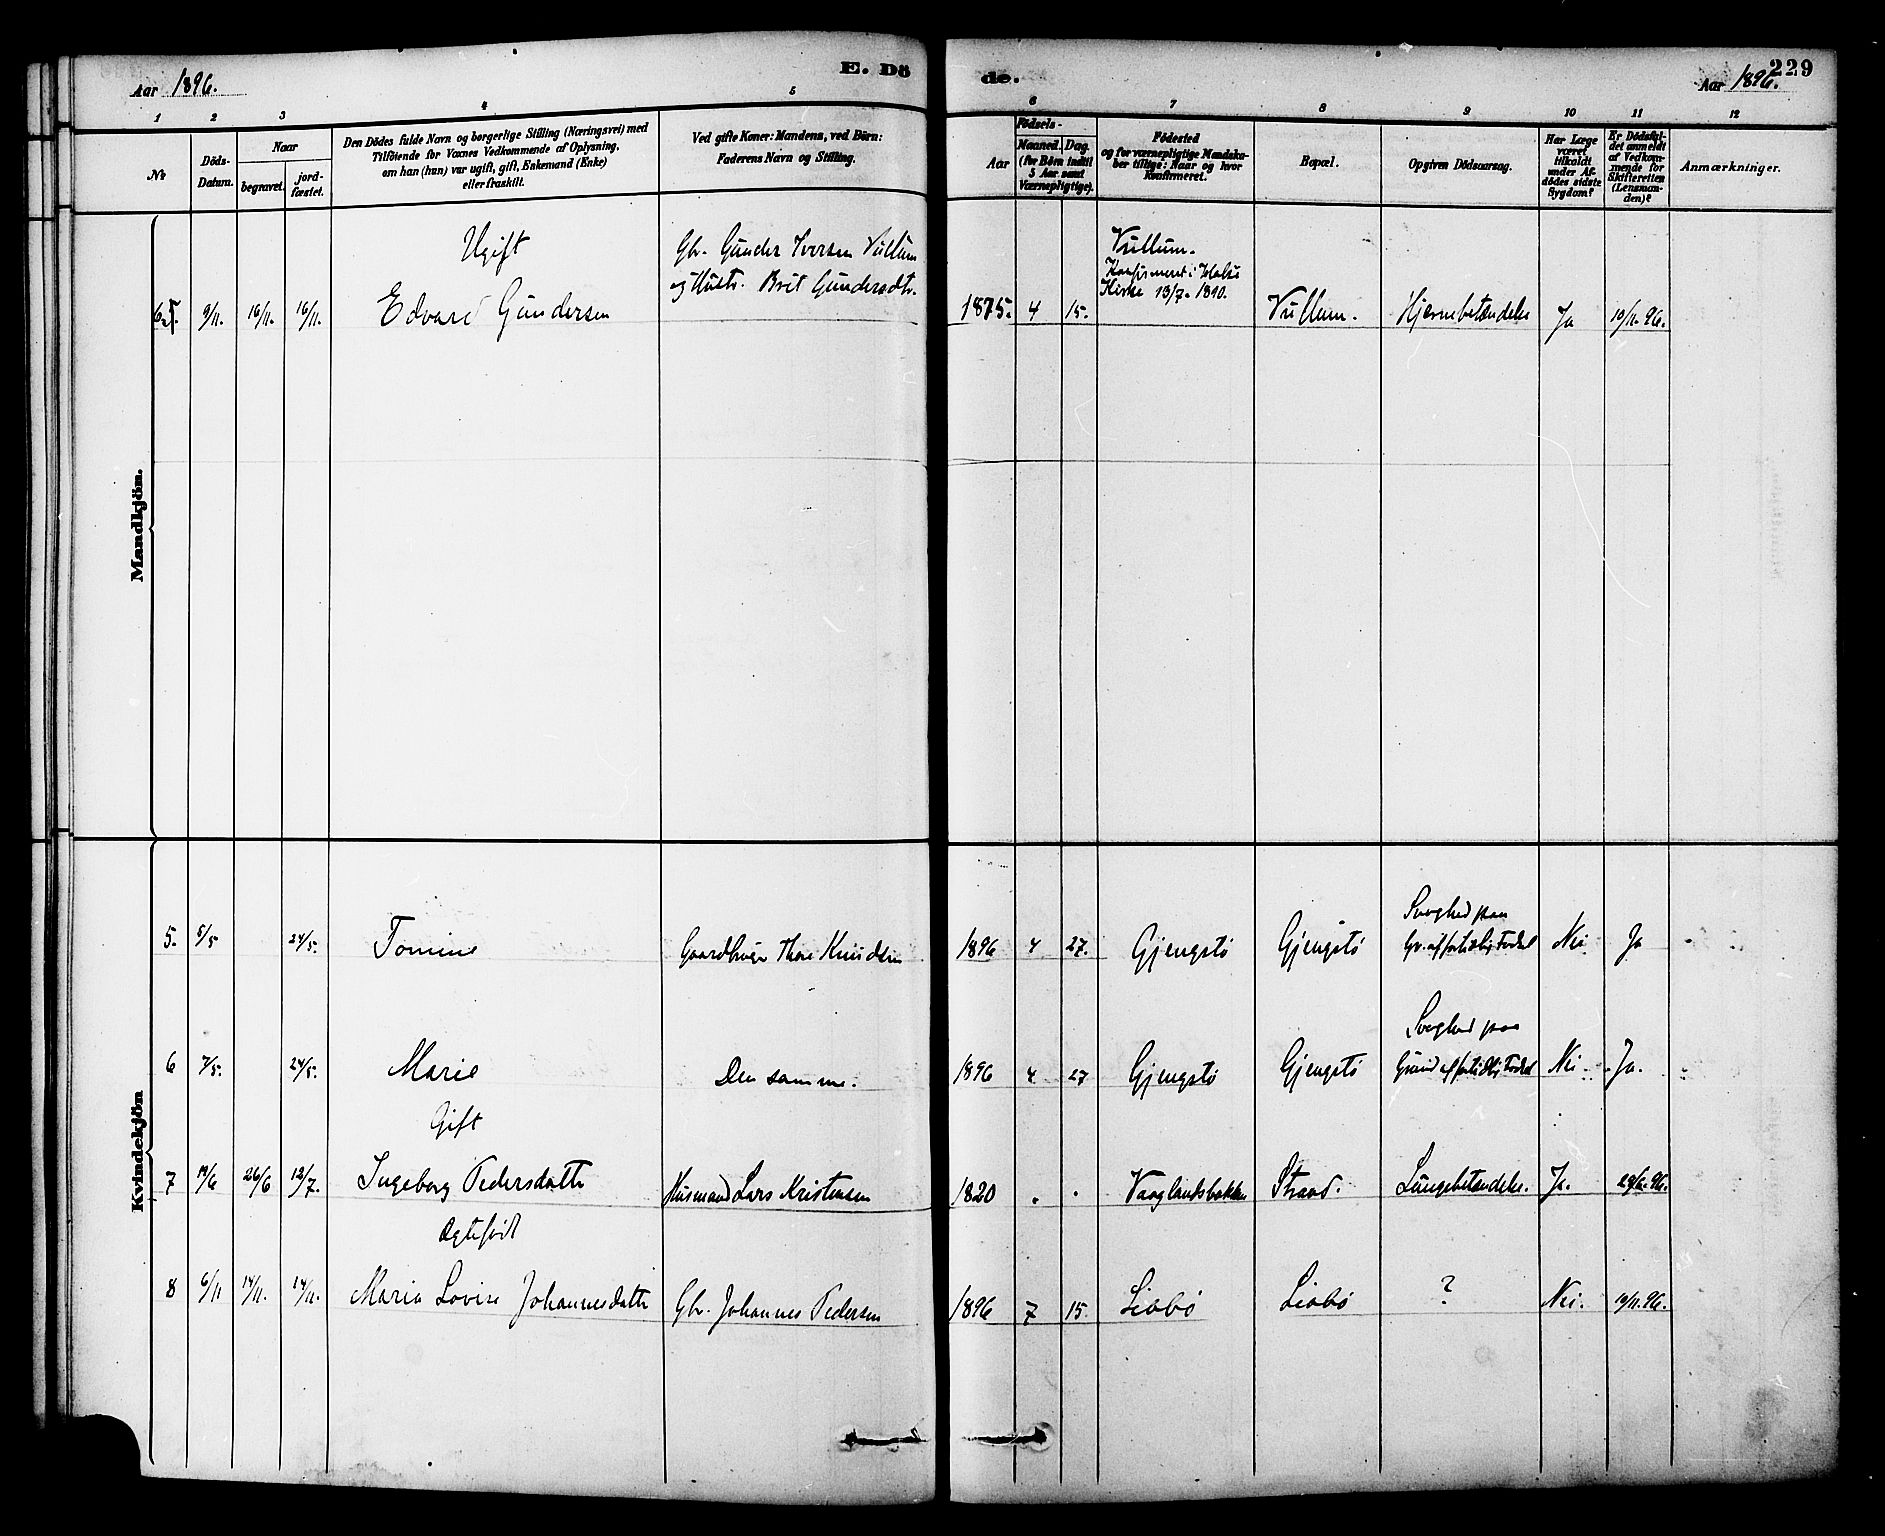 Aar 1896.
E. Dö
de.
Aar 1896.
229
1 2 3 4 5 6 7 8 9 10 11 12
No
Döds-
Datum.
Naar
begravet.
jord-
fæstet.
Den Dödes fulde Navn og borgerlige Stilling (Næringsvei) med
Tilföiende for Voxnes Vedkommende af Oplysning,
om han (hun) var ugift, gift, Enkemand (Enke)
eller fraskilt.
Ved gifte Koner: Mandens, ved Börn:
Faderens Navn og Stilling.
Födsels-
Aar
Maaned.
Dag.
(for Börn indtil
5 Aar samt
Værnepligtige).
Födested
og for værnepligtige Mandska-
ber tillige: Naar og hvor
konfirmeret.
Bopæl.
Opgiven Dödsaarsag.
Har Læge
været
tilkaldt
under Af-
dödes sidste
Sygdom?
Er Dödsfal-
det anmeldt
af Vedkom-
mende for
Skifteretten
(Lensman-
den)?
Anmærkninger.
Mandkjön.
Ugift
Gbr. Gunder Iversen Vullum
og Hustr. Brit Gundersdtr.
Vullum.
Konfirmeret i Halse
Kirke 13/7. 1890.
9/11. 16/11. 16/11. Edvard Gundersen 1875. 4 15. Vullum. Hjernebetændelse Ja 10/11. 96.
Kvindekjön
Svaghed paa
5. 5/5 24/5. Tomine Gaardbruger Thore Knudsen 1896 4 27. Gjengstö Gjengstö Gr. af fortidlig Fødsel Nei Ja
Svaghed paa
6 7/5. 24/5. Marie Den samme. 1896 4 27 Gjengstö Gjengstö Grund af fortidlig Fødsel Nei. Ja.
Gift
7 19/6 26/6 12/7. Ingeborg Pedersdatte Husmand Lars Kristensen 1820 . . Vaaglandsbakken Strand. Lungebetændelse. Ja. 96.
Ægtefödt
8 6/11 14/11. 14/11. Maria Lovise Johannesdatte Gbr. Johannes Pedersen 1896 7 15. Liabö Liabö ? Nei. 10/11. 96.